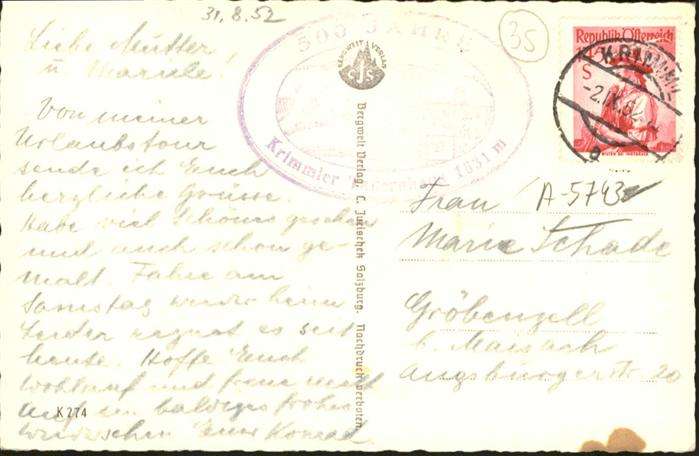 31.8.52
Liebe Mutter
u Mariele!
Von meiner
Urlaubstour
sende ich Euch
herzliche Grüsse.
Habe viel schönes gesehen
und auch schon ge-
malt. Fahre am
Samstag wieder heim
Leider regnet es seit
heute. Hoffe Euch
wohlauf und freue mich
auf ein baldiges frohes
wiedersehen Euer Konrad
K 274
500 JAHRE
Krimmler Tauernhaus 1631 m
BERGWELT VERLAG
CJS
Bergwelt Verlag, C. Jurischek Salzburg. Nachdruck verboten.
35
Republik Österreich
S
KRIMML
-2.IX.52
a
Frau A-5743
Marie Schade
Gröbenzell
b Maisach
Augsburger Str. 20